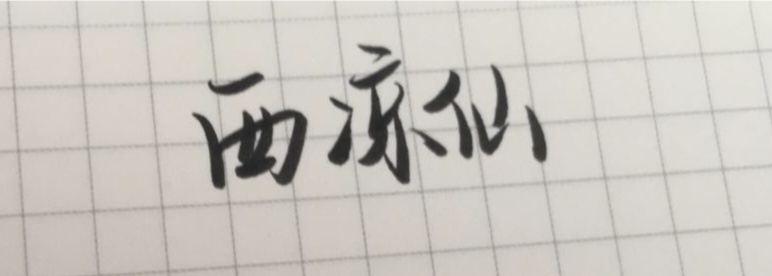 西凉仙